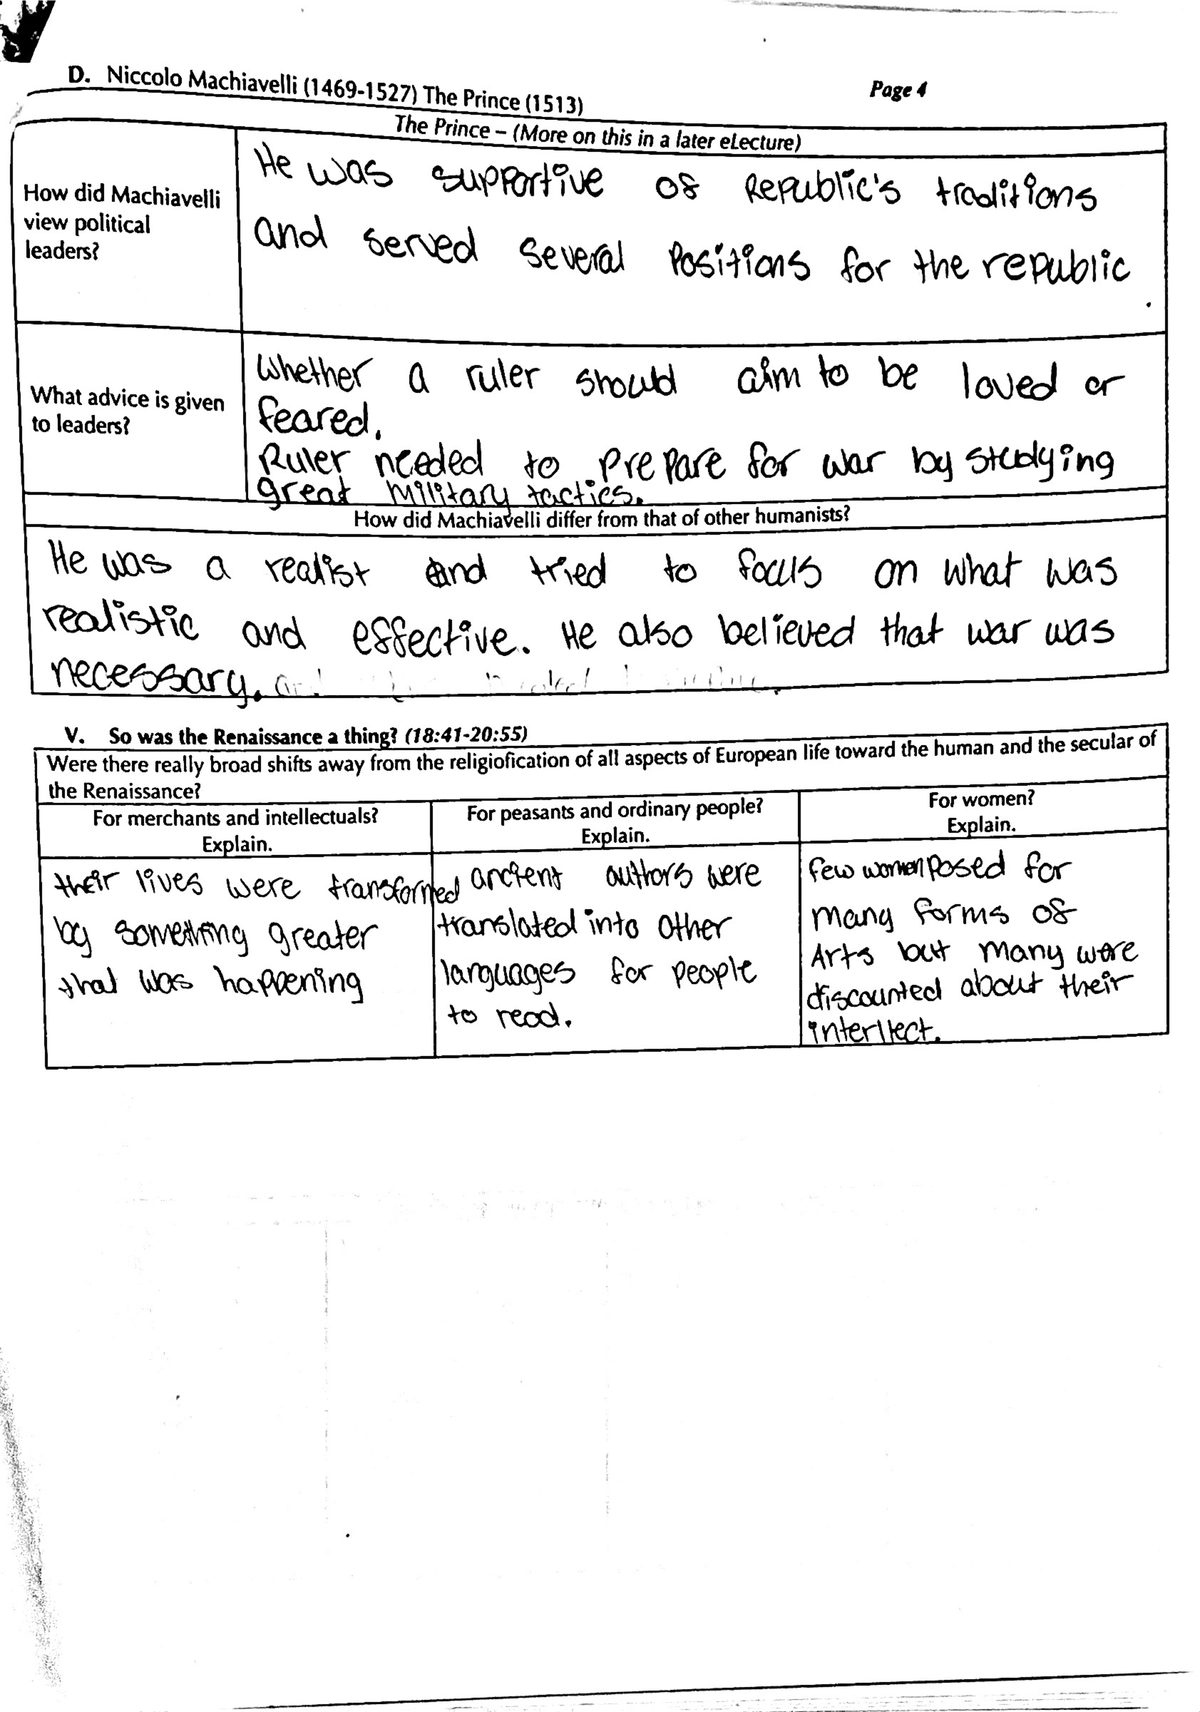 D. Niccolo Machiavelli (1469-1527) The Prince (1513)
Page 4
The Prince – (More on this in a later eLecture)
How did Machiavelli
view political
leaders?
He was supportive of Republic's traditions
and served several positions for the republic
.
What advice is given
to leaders?
Whether a ruler should aim to be loved or
feared.
Ruler needed to prepare for war by studying
great military tactics.
How did Machiavelli differ from that of other humanists?
He was a realist and tried to focus on what was
realistic and effective. He also believed that war was
necessary.
V. So was the Renaissance a thing? (18:41-20:55)
Were there really broad shifts away from the religiofication of all aspects of European life toward the human and the secular of
the Renaissance?
For merchants and intellectuals?
Explain.
their lives were transformed
by something greater
that was happening
For peasants and ordinary people?
Explain.
ancient authors were
translated into other
languages for people
to read.
For women?
Explain.
few women posed for
many forms of
Arts but many were
discounted about their
interllect.